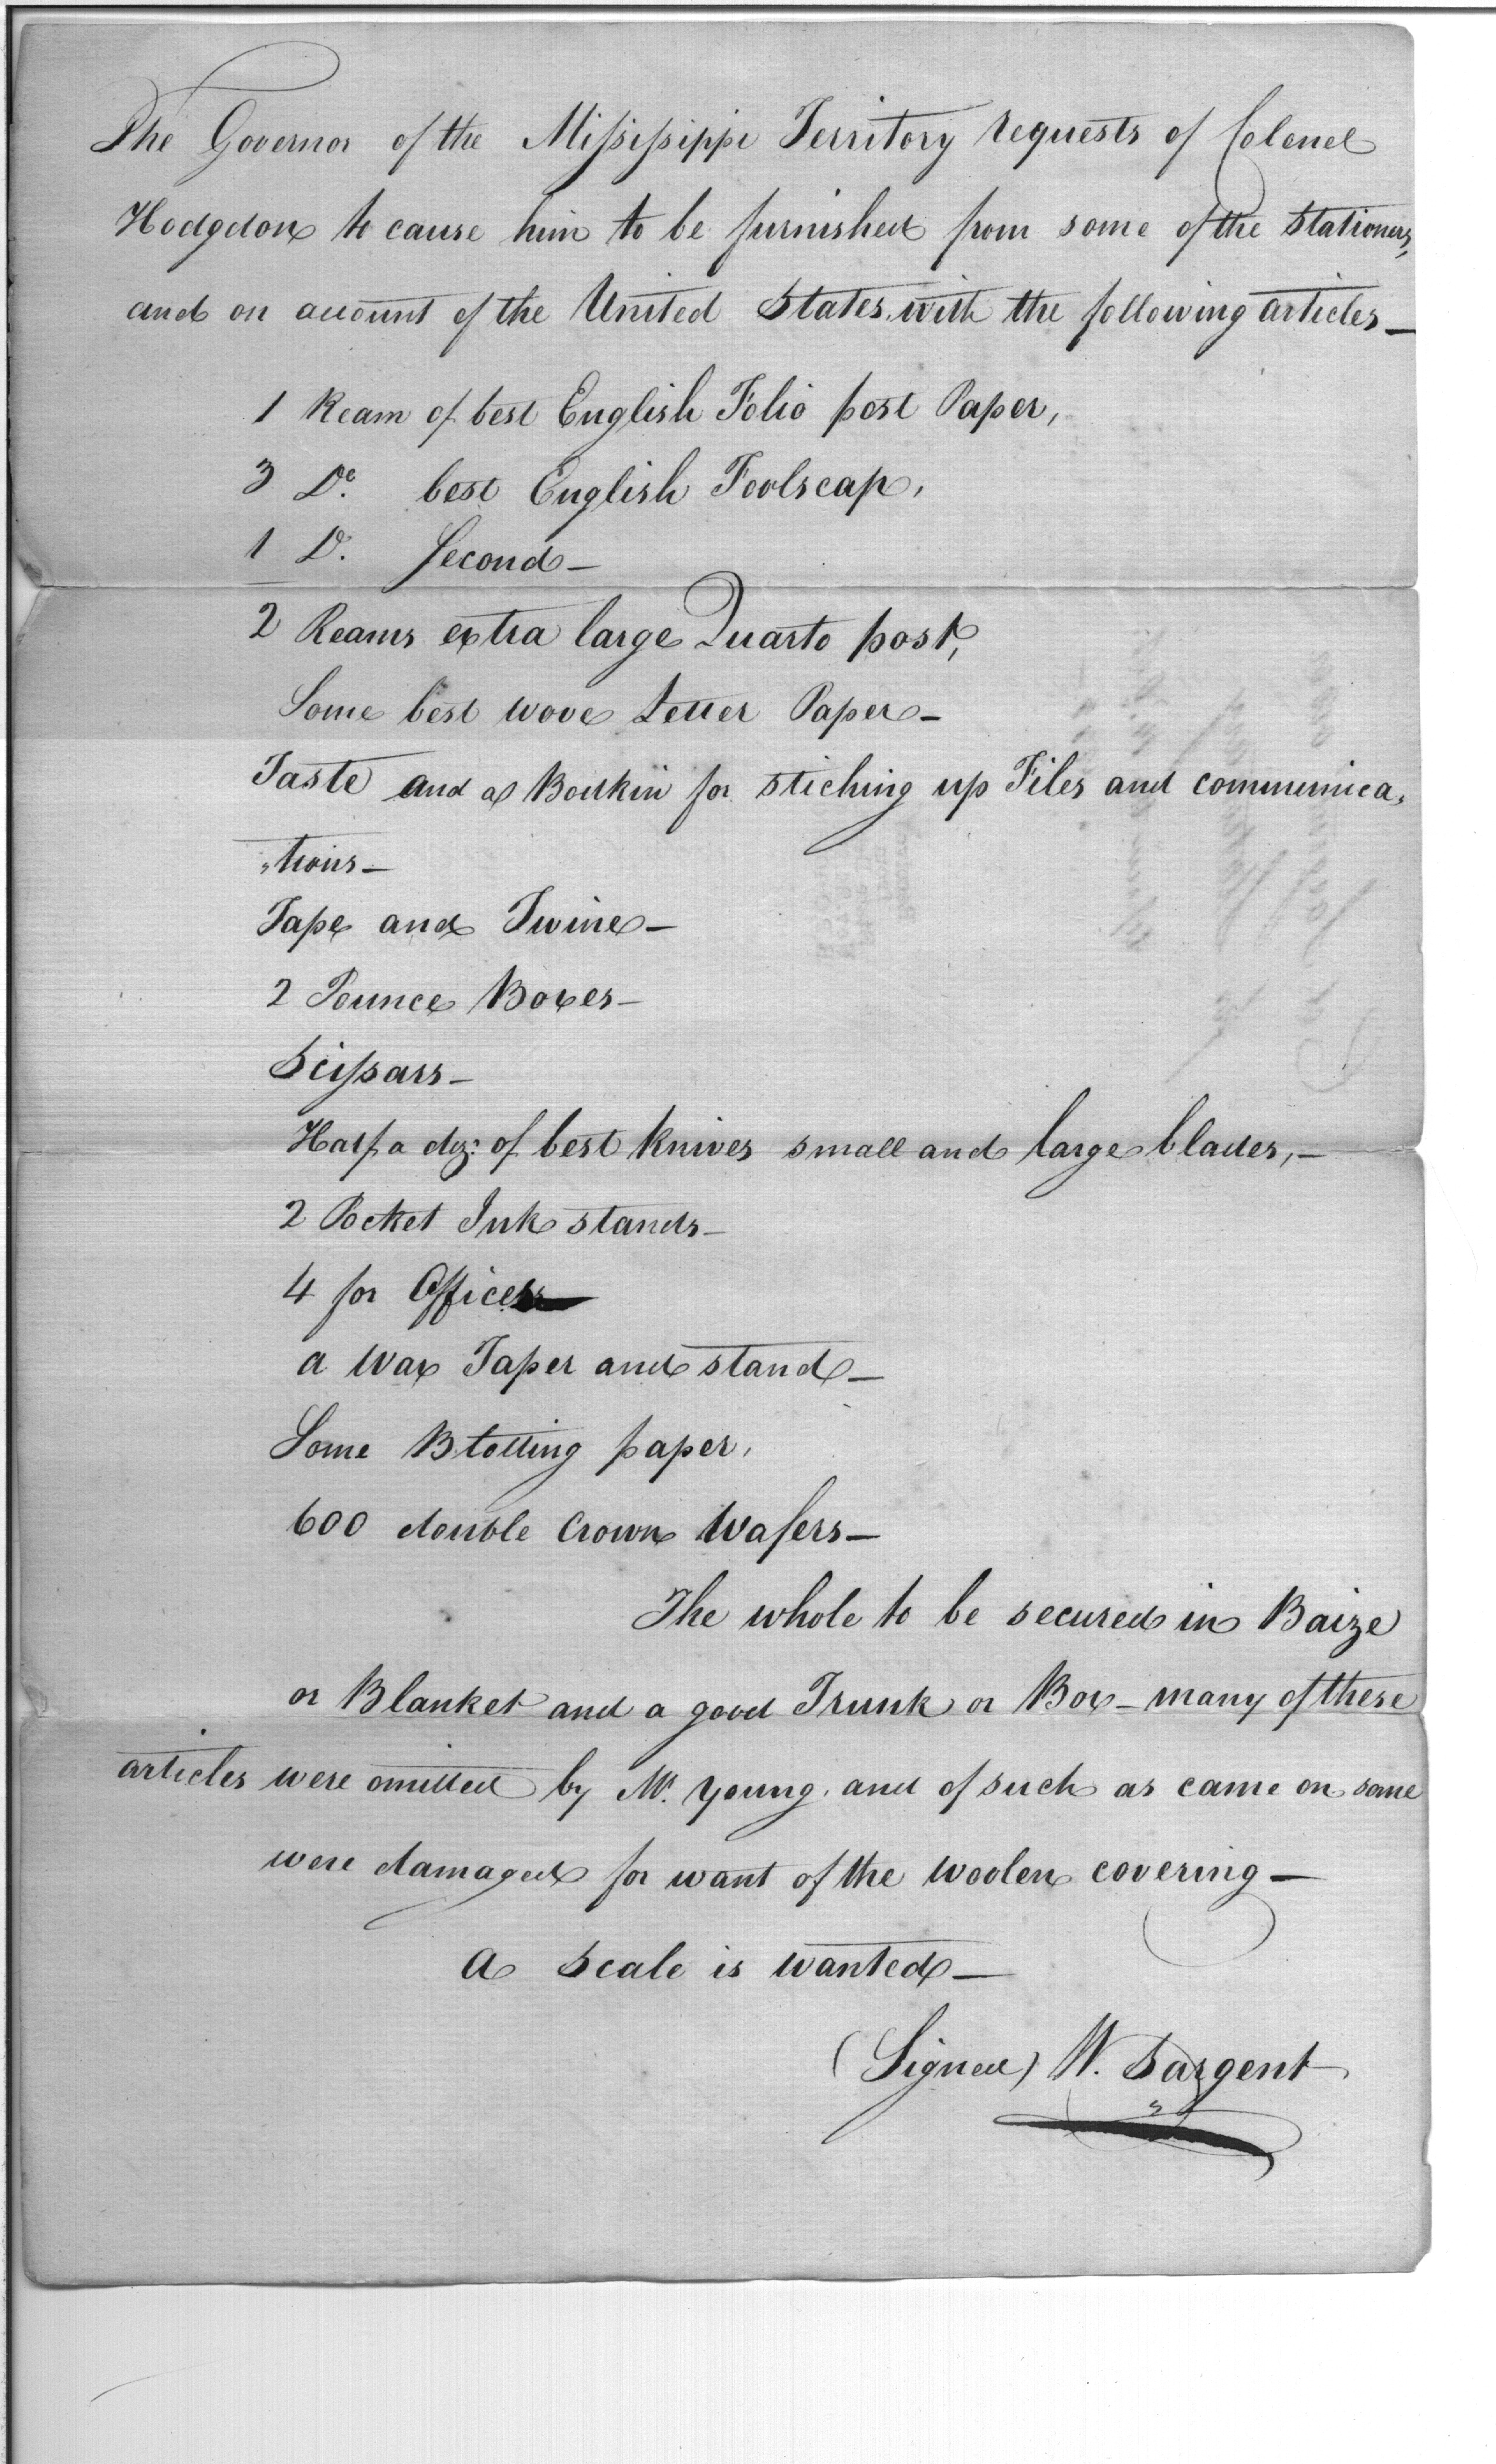 The Governor of the Missisippi Territory requests of Colonel
Hodgdon to cause him to be furnished from some of the Stationers,
and on account of the United States, with the following articles—
1 Ream of best English Folio post Paper,
3 Do. best English Foolscap,
1 Do. Second—
2 Reams extra large Quarto post,
Some best wove Letter Paper—
Taste and a Bodkin for stiching up Files and communica„
„tions—
Tape and Twine—
2 Pounce Boxes—
Scissars—
Half a doz: of best knives small and large blades,—
2 Pocket Ink stands—
4 for Office
a Wax Taper and stand—
Some Blotting paper,
600 double Crown Wafers—
The whole to be secured in Baize
or Blanket and a good Trunk or Box—many of these
articles were omitted by Mr. Young, and of such as came on some
were damaged for want of the woolen covering—
A Scale is wanted—
(Signed) W. Sargent